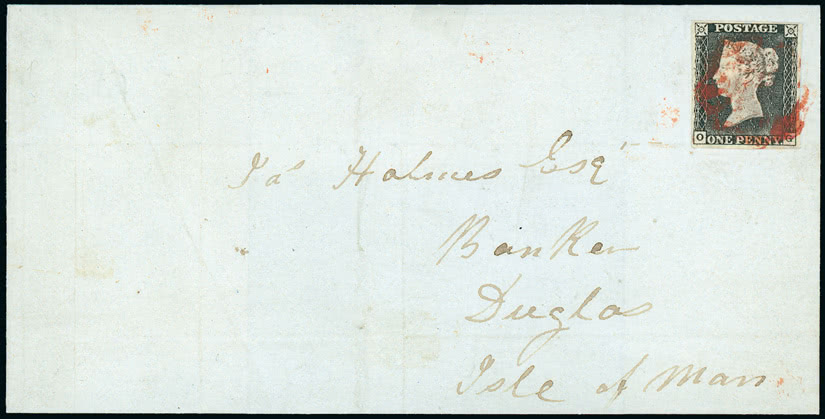 POSTAGE
O ONE PENNY G
Jas Holmes Esqr
Banker
Duglas
Isle of Man